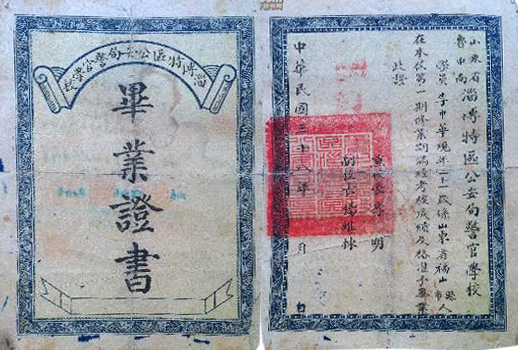 淄博特區公安局警官學校
畢業證書
山東省
魯中南
淄博特區公安局警官學校
學員李中華現年二一歲係山東省福山縣市人
在本校第一期修業期滿經考核成績及格准予畢業
此證
校長李 明
副校長楊維
中華民國三十八年 月 日